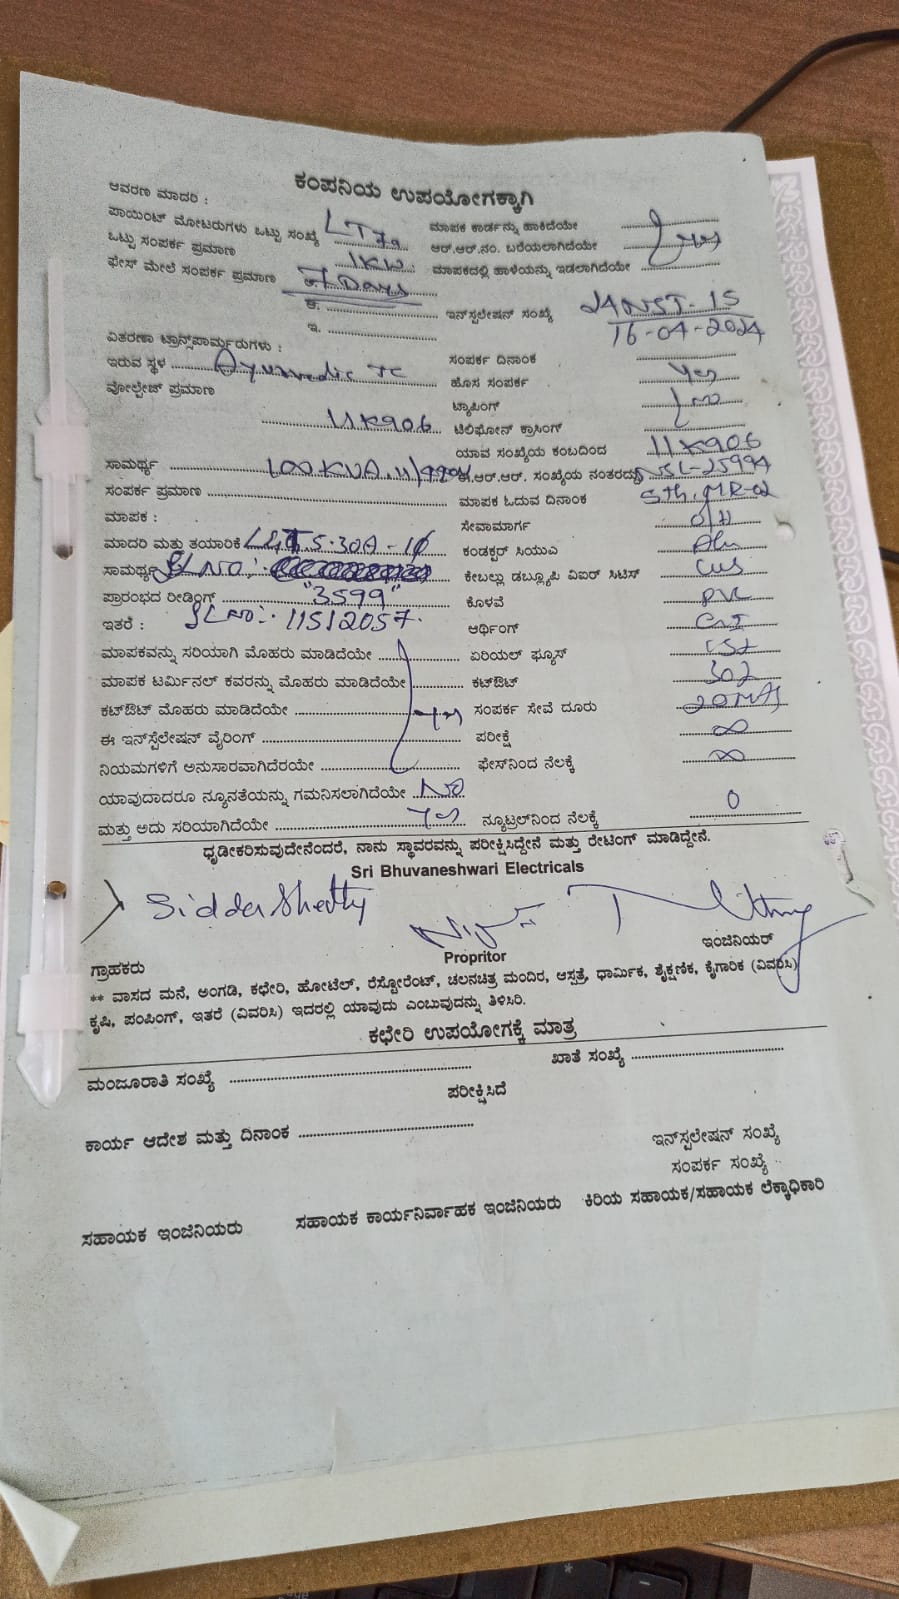 ಕಂಪನಿಯ ಉಪಯೋಗಕ್ಕಾಗಿ
ಆವರಣ ಮಾದರಿ :
ಪಾಯಿಂಟ್ ಮೋಟರುಗಳು ಒಟ್ಟು ಸಂಖ್ಯೆ LT 7a ಮಾಪಕ ಕಾರ್ಡನ್ನು ಹಾಕಿದೆಯೇ
ಒಟ್ಟು ಸಂಪರ್ಕ ಪ್ರಮಾಣ 1KW ಆರ್.ಆರ್.ನಂ. ಬರೆಯಲಾಗಿದೆಯೇ yes
ಫೇಸ್ ಮೇಲೆ ಸಂಪರ್ಕ ಪ್ರಮಾಣ 7 Days ಮಾಪಕದಲ್ಲಿ ಹಾಳೆಯನ್ನು ಇಡಲಾಗಿದೆಯೇ
ಆ. ಇನ್‌ಸ್ಟಲೇಷನ್ ಸಂಖ್ಯೆ
ಇ. 16-04-2024
ವಿತರಣಾ ಟ್ರಾನ್ಸ್‌ಪಾರ್ಮ್ರುಗಳು :
ಇರುವ ಸ್ಥಳ Ayurvedic TC ಸಂಪರ್ಕ ದಿನಾಂಕ
ವೋಲ್ಟೇಜ್ ಪ್ರಮಾಣ ಹೊಸ ಸಂಪರ್ಕ yes
ಟ್ಯಾಪಿಂಗ್
11K906 ಟೆಲಿಫೋನ್ ಕ್ರಾಸಿಂಗ್ no
ಯಾವ ಸಂಖ್ಯೆಯ ಕಂಬದಿಂದ 11K906
ಸಾಮರ್ಥ್ಯ 100KVA ಆರ್.ಆರ್. ಸಂಖ್ಯೆಯ ನಂತರದ್ದು
ಸಂಪರ್ಕ ಪ್ರಮಾಣ ಮಾಪಕ ಓದುವ ದಿನಾಂಕ 5th, MR-02
ಮಾಪಕ : ಸೇವಾಮಾರ್ಗ O/H
ಮಾದರಿ ಮತ್ತು ತಯಾರಿಕೆ ಕಂಡಕ್ಟರ್ ಸಿಯುಎ
ಸಾಮರ್ಥ್ಯ SL NO: ಕೇಬಲ್ಲು ಡಬ್ಲ್ಯೂಪಿ ವಿಐರ್ ಸಿಟಿಸ್
ಪ್ರಾರಂಭದ ರೀಡಿಂಗ್ "3599" ಕೊಳವೆ PVC
ಇತರೆ : SL NO: 11512057 ಆರ್ಥಿಂಗ್
ಮಾಪಕವನ್ನು ಸರಿಯಾಗಿ ಮೊಹರು ಮಾಡಿದೆಯೇ ಏರಿಯಲ್ ಫ್ಯೂಸ್
ಮಾಪಕ ಟರ್ಮಿನಲ್ ಕವರನ್ನು ಮೊಹರು ಮಾಡಿದೆಯೇ ಕಟ್‌ಔಟ್
ಕಟ್‌ಔಟ್ ಮೊಹರು ಮಾಡಿದೆಯೇ yes ಸಂಪರ್ಕ ಸೇವೆ ದೂರು 20 Mts
ಈ ಇನ್‌ಸ್ಟೆಲೇಷನ್ ವೈರಿಂಗ್ ಪರೀಕ್ಷೆ ∞
ನಿಯಮಗಳಿಗೆ ಅನುಸಾರವಾಗಿದೆರಯೇ ಫೇಸ್‌ನಿಂದ ನೆಲಕ್ಕೆ ∞
ಯಾವುದಾದರೂ ನ್ಯೂನತೆಯನ್ನು ಗಮನಿಸಲಾಗಿದೆಯೇ NO
ಮತ್ತು ಅದು ಸರಿಯಾಗಿದೆಯೇ yes ನ್ಯೂಟ್ರಲ್‌ನಿಂದ ನೆಲಕ್ಕೆ 0
ಧೃಡೀಕರಿಸುವುದೇನೆಂದರೆ, ನಾನು ಸ್ಥಾವರವನ್ನು ಪರೀಕ್ಷಿಸಿದ್ದೇನೆ ಮತ್ತು ರೇಟಿಂಗ್ ಮಾಡಿದ್ದೇನೆ.
Sri Bhuvaneshwari Electricals
SiddaShetty
ಗ್ರಾಹಕರು Propritor ಇಂಜಿನಿಯರ್
** ವಾಸದ ಮನೆ, ಅಂಗಡಿ, ಕಛೇರಿ, ಹೋಟೆಲ್, ರೆಸ್ಟೋರೆಂಟ್, ಚಲನಚಿತ್ರ ಮಂದಿರ, ಆಸ್ಪತ್ರೆ, ಧಾರ್ಮಿಕ, ಶೈಕ್ಷಣಿಕ, ಕೈಗಾರಿಕ (ವಿವರಿಸಿ)
ಕೃಷಿ, ಪಂಪಿಂಗ್, ಇತರೆ (ವಿವರಿಸಿ) ಇದರಲ್ಲಿ ಯಾವುದು ಎಂಬುವುದನ್ನು ತಿಳಿಸಿರಿ.
ಕಛೇರಿ ಉಪಯೋಗಕ್ಕೆ ಮಾತ್ರ
ಮಂಜೂರಾತಿ ಸಂಖ್ಯೆ ಖಾತೆ ಸಂಖ್ಯೆ
ಪರೀಕ್ಷಿಸಿದೆ
ಕಾರ್ಯ ಆದೇಶ ಮತ್ತು ದಿನಾಂಕ
ಇನ್‌ಸ್ಪಲೇಷನ್ ಸಂಖ್ಯೆ
ಸಂಪರ್ಕ ಸಂಖ್ಯೆ
ಸಹಾಯಕ ಇಂಜಿನಿಯರು ಸಹಾಯಕ ಕಾರ್ಯನಿರ್ವಾಹಕ ಇಂಜಿನಿಯರು ಕಿರಿಯ ಸಹಾಯಕ/ಸಹಾಯಕ ಲೆಕ್ಕಾಧಿಕಾರಿ